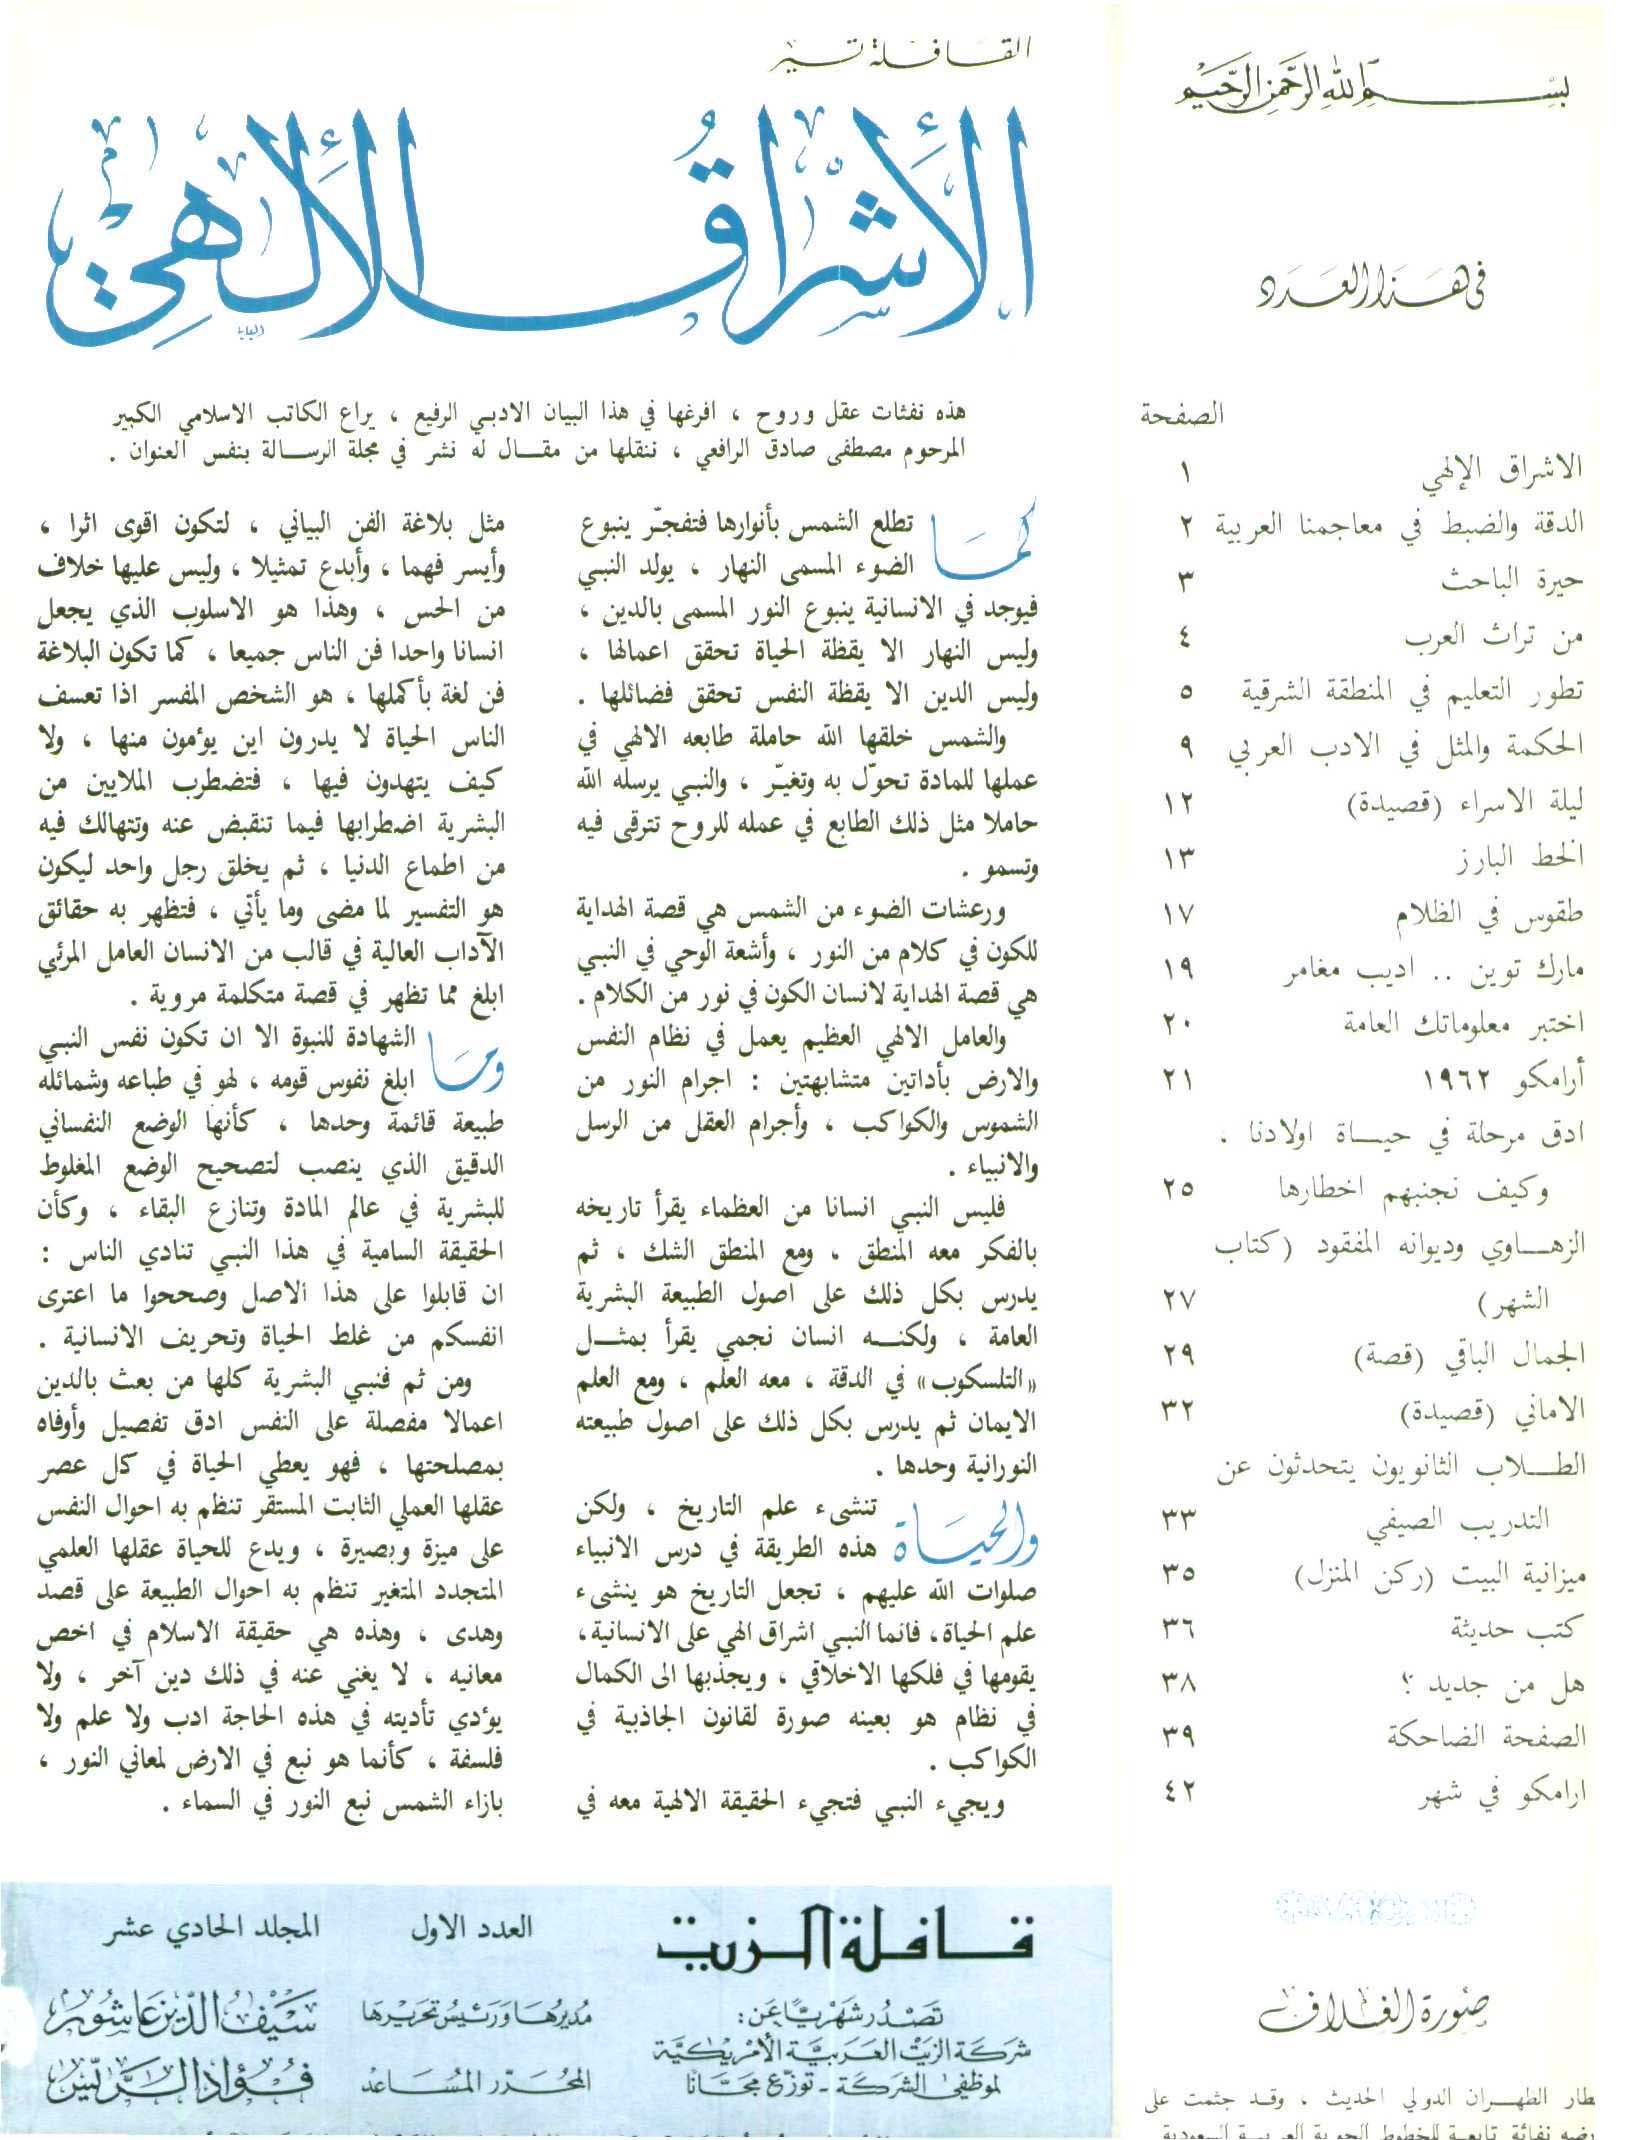 بسم الله الرحمن الرحيم
في هذا العدد
الصفحة
الاشراق الإلهي ١
الدقة والضبط في معاجمنا العربية ٢
حيرة الباحث ٣
من تراث العرب ٤
تطور التعليم في المنطقة الشرقية ٥
الحكمة والمثل في الادب العربي ٩
ليلة الاسراء (قصيدة) ١٢
الخط البارز ١٣
طقوس في الظلام ١٧
مارك توين .. اديب مغامر ١٩
اختبر معلوماتك العامة ٢٠
أرامكو ١٩٦٢ ٢١
ادق مرحلة في حياة اولادنا ،
وكيف نجنبهم اخطارها ٢٥
الزهاوي وديوانه المفقود (كتاب
الشهر) ٢٧
الجمال الباقي (قصة) ٢٩
الاماني (قصيدة) ٣٢
الطلاب الثانويون يتحدثون عن
التدريب الصيفي ٣٣
ميزانية البيت (ركن المنزل) ٣٥
كتب حديثة ٣٦
هل من جديد ؟ ٣٨
الصفحة الضاحكة ٣٩
ارامكو في شهر ٤٢
صورة الغلاف
طار الظهران الدولي الحديث ، وقد جثمت على
رضه نفاثة تابعة للخطوط الجوية العربية السعودية
القافلة تسير
الأشراق الألهي
هذه نفثات عقل وروح ، افرغها في هذا البيان الادبي الرفيع ، يراع الكاتب الاسلامي الكبير
المرحوم مصطفى صادق الرافعي ، ننقلها من مقال له نشر في مجلة الرسالة بنفس العنوان .
كما تطلع الشمس بأنوارها فتفجّر ينبوع
الضوء المسمى النهار ، يولد النبي
فيوجد في الانسانية ينبوع النور المسمى بالدين ،
وليس النهار الا يقظة الحياة تحقق اعمالها ،
وليس الدين الا يقظة النفس تحقق فضائلها .
والشمس خلقها الله حاملة طابعه الالهي في
عملها للمادة تحوّل به وتغيّر ، والنبي يرسله الله
حاملا مثل ذلك الطابع في عمله للروح تترقى فيه
وتسمو .
ورعشات الضوء من الشمس هي قصة الهداية
للكون في كلام من النور ، وأشعة الوحي في النبي
هي قصة الهداية لانسان الكون في نور من الكلام .
والعامل الالهي العظيم يعمل في نظام النفس
والارض بأداتين متشابهتين : اجرام النور من
الشموس والكواكب ، وأجرام العقل من الرسل
والانبياء .
فليس النبي انسانا من العظماء يقرأ تاريخه
بالفكر معه المنطق ، ومع المنطق الشك ، ثم
يدرس بكل ذلك على اصول الطبيعة البشرية
العامة ، ولكنه انسان نجمي يقرأ بمثل
«التلسكوب» في الدقة ، معه العلم ، ومع العلم
الايمان ثم يدرس بكل ذلك على اصول طبيعته
النورانية وحدها .
والحياة تنشىء علم التاريخ ، ولكن
هذه الطريقة في درس الانبياء
صلوات الله عليهم ، تجعل التاريخ هو ينشىء
علم الحياة، فانما النبي اشراق الهي على الانسانية،
يقومها في فلكها الاخلاقي ، ويجذبها الى الكمال
في نظام هو بعينه صورة لقانون الجاذبية في
الكواكب .
ويجيء النبي فتجيء الحقيقة الالهية معه في
مثل بلاغة الفن البياني ، لتكون اقوى اثرا ،
وأيسر فهما ، وأبدع تمثيلا ، وليس عليها خلاف
من الحس ، وهذا هو الاسلوب الذي يجعل
انسانا واحدا فن الناس جميعا ، كما تكون البلاغة
فن لغة بأكملها ، هو الشخص المفسر اذا تعسف
الناس الحياة لا يدرون اين يؤمون منها ، ولا
كيف يتهدون فيها ، فتضطرب الملايين من
البشرية اضطرابها فيما تنقبض عنه وتتهالك فيه
من اطماع الدنيا ، ثم يخلق رجل واحد ليكون
هو التفسير لما مضى وما يأتي ، فتظهر به حقائق
الآداب العالية في قالب من الانسان العامل المرئي
ابلغ مما تظهر في قصة متكلمة مروية .
وما الشهادة للنبوة الا ان تكون نفس النبي
ابلغ نفوس قومه ، لهو في طباعه وشمائله
طبيعة قائمة وحدها ، كأنها الوضع النفساني
الدقيق الذي ينصب لتصحيح الوضع المغلوط
للبشرية في عالم المادة وتنازع البقاء ، وكأن
الحقيقة السامية في هذا النبي تنادي الناس :
ان قابلوا على هذا الاصل وصححوا ما اعترى
انفسكم من غلط الحياة وتحريف الانسانية .
ومن ثم فنبي البشرية كلها من بعث بالدين
اعمالا مفصلة على النفس ادق تفصيل وأوفاه
بمصلحتها ، فهو يعطي الحياة في كل عصر
عقلها العملي الثابت المستقر تنظم به احوال النفس
على ميزة وبصيرة ، ويدع للحياة عقلها العلمي
المتجدد المتغير تنظم به احوال الطبيعة على قصد
وهدى ، وهذه هي حقيقة الاسلام في اخص
معانيه ، لا يغني عنه في ذلك دين آخر ، ولا
يؤدي تأديته في هذه الحاجة ادب ولا علم ولا
فلسفة ، كأنما هو نبع في الارض لمعاني النور ،
بازاء الشمس نبع النور في السماء .
قافلة الزيت
تصدر شهريًا عن:
شركة الزيت العربية الأمريكية
لموظفي الشركة - توزع مجانًا
العدد الاول
المجلد الحادي عشر
مديرها ورئيس تحريرها
سيف الدين عاشور
المحرر المساعد
فؤاد الريس